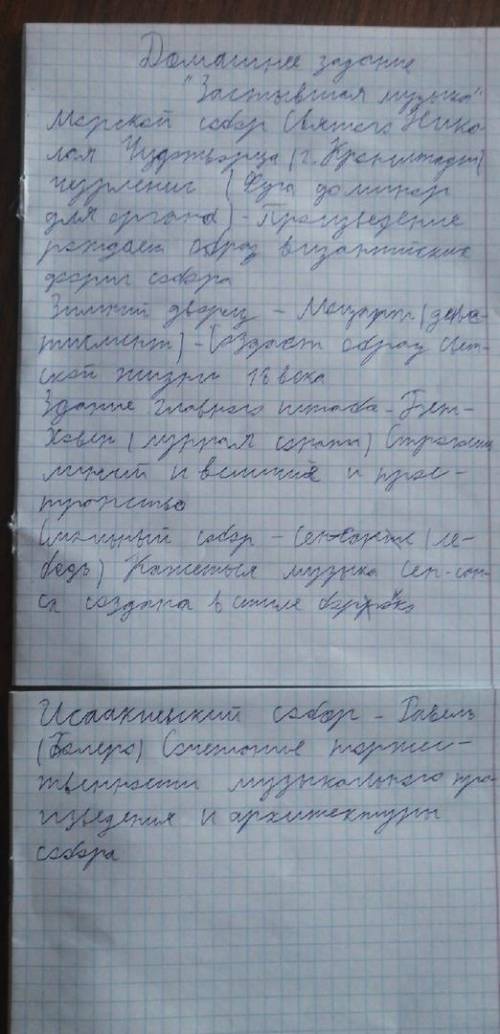 Домашнее задание
"Застывшая музыка"
Морской собор Святого Нико
лая Чудотворца (г. Кронштадт)
Чурленис (Фуга до минор
для органа) - Произведение
рождает образ византийских
форм собора
Зимний дворец - Моцарт (диве
тисмент) - Создаст образ
ской жизни 18 века
Здание главного штаба - Бет-
ховен (лунная соната)
линий и величие и прос-
транство
Смольный собор - Сен-санс (ле-
бедь) Кажеться музыка Сен-сан-
са создана в стиле барокко
Исаакиевский собор - Равель
(Болеро) Сочетание торжес-
твенности музыкального про
изведения и архитектуры
собора